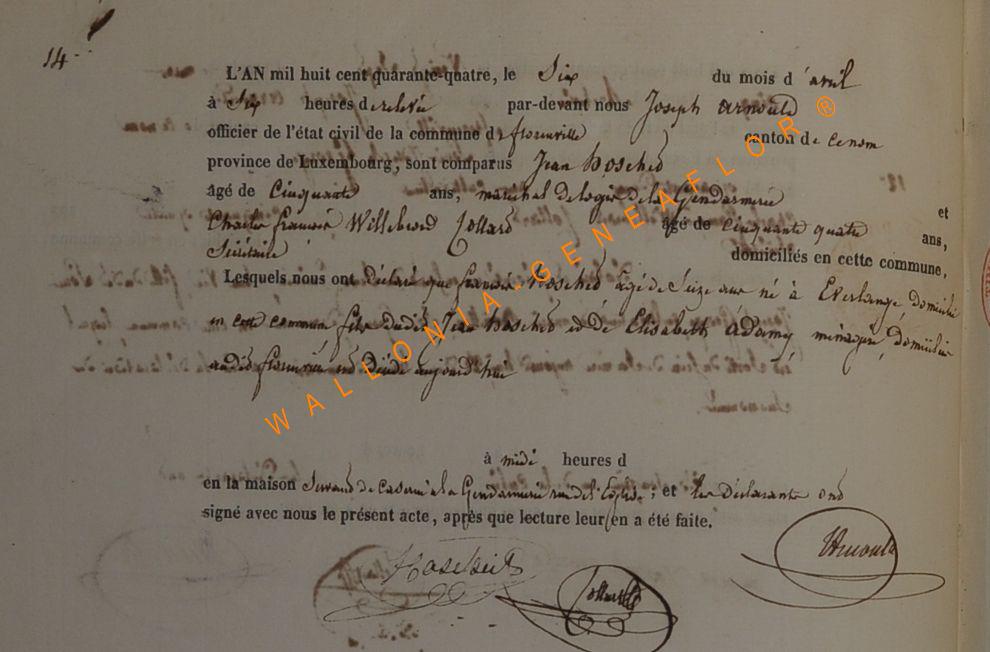 14
L'AN mil huit cent quarante-quatre, le Six du mois d'avril
à Six heures de relevée par-devant nous Joseph Arnould
officier de l'état civil de la commune de florenville canton de ce nom
province de Luxembourg, sont comparus Jean hosched
âgé de Cinquante ans, maréchal de logis de la Gendarmerie et
Charles francois Willebrord Collard âgé de cinquante quatre ans,
Sécrétaire domiciliés en cette commune,
Lesquels nous ont déclaré que françois hosched agé de Seize ans né à Everlange, domicilié
en cette commune fils dudit Jean hosched et de Elisabeth Adamy ménagere, domiciliée
audit florenville est décédé aujourd'hui
à midi heures d
en la maison Servant de caserne à la Gendarmerie rue de l'Eglise; et les Déclarants ont
signé avec nous le présent acte, après que lecture leur en a été faite.
Collard
Arnould
WALLONIA.GENEAFLOR®